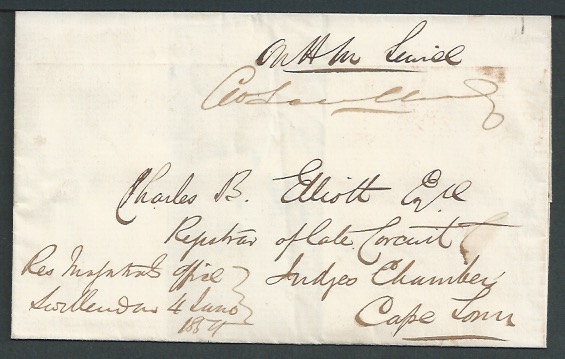 On H M Servicе
Charles B. Elliott Esqre
Registrar of late Circuit
Judges Chamber
Cape Town
Res Magistrats Office
Swellendam 4 June
1859